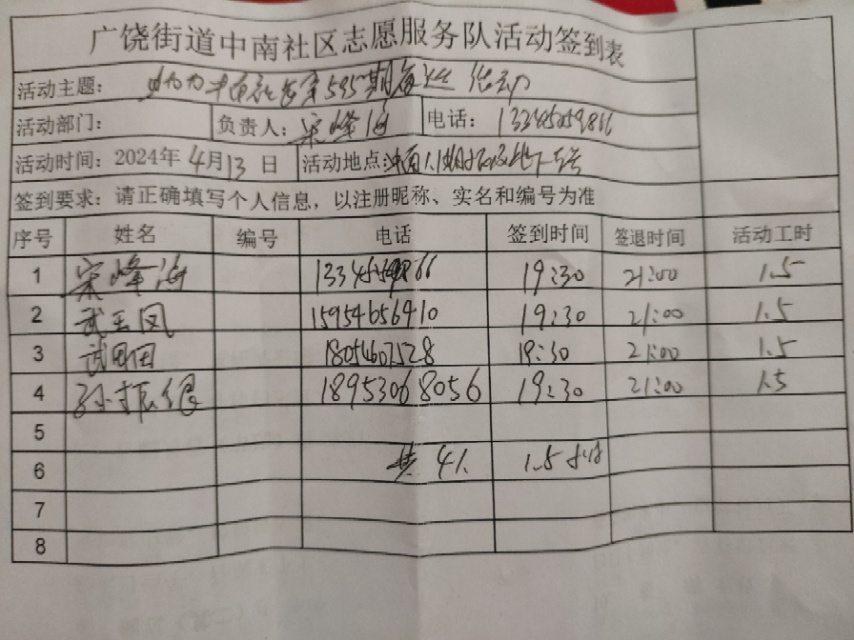 广饶街道中南社区志愿服务队活动签到表
活动主题： 第595期夜巡活动
活动部门： 负责人：宋峰海 电话：
活动时间：2024年4月13日 活动地点：
签到要求：请正确填写个人信息，以注册昵称、实名和编号为准
序号 姓名 编号 电话 签到时间 签退时间 活动工时
1 宋峰海 19:30 21:00 1.5
2 武玉凤 15954656410 19:30 21:00 1.5
3 18054607528 19:30 21:00 1.5
4 孙振银 18953068056 19:30 21:00 1.5
5
6 共4人 1.5小时
7
8